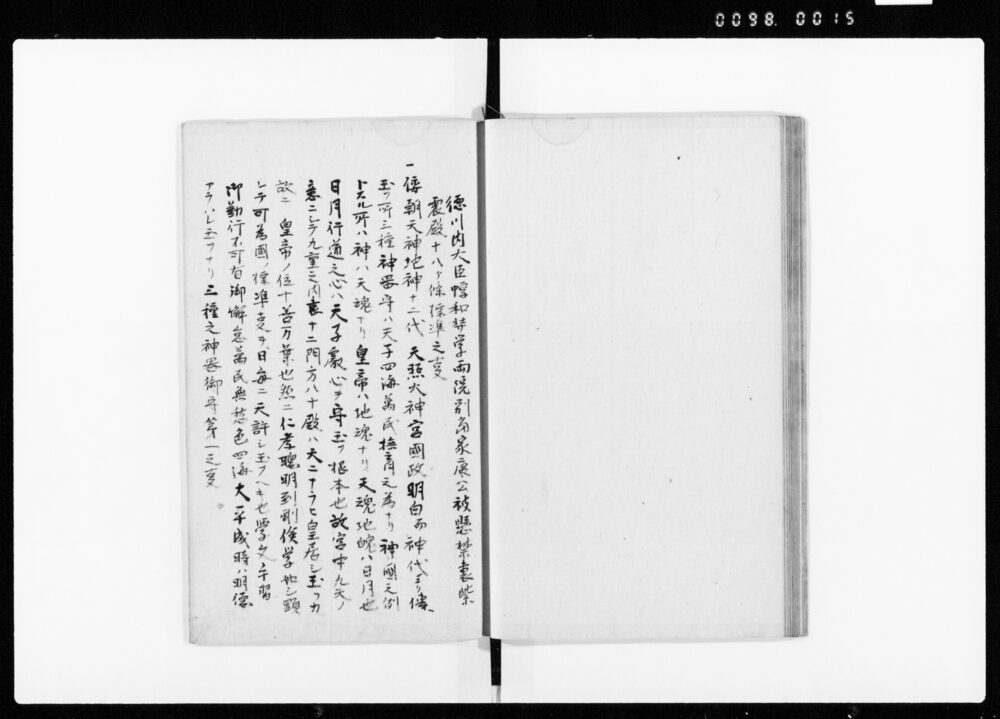 0098. 0015
徳川内大臣惇和弉学両院別當家康公被懸禁裏紫
震殿十八ヶ條標準之叓
一倭朝天神地神十二代天照大神宮國政明白而神代ヨリ傳
玉フ所三種神器守ハ天子四海萬民撫育之為ナリ神國之例
トスル所ハ神ハ天魂ナリ皇帝ハ地魂ナリ天魂地魄ハ日月也
日月行道之心ハ天子叡心ヲ守玉フ根本也故宮中九天ノ
意ニシテ九重之内裏十二門方八十殿ハ天ニナラヒ皇居シ玉フカ
故ニ皇帝ノ位十善万葉也然ニ仁孝聰明到剛俟学也シ顕
シテ可為國ノ標準叓ヲ日毎ニ天許シ玉フヘキ也學文手習
御勤行不可有御懈怠萬民無愁色四海大平成時ハ明徳
アラハレ玉フナリ三種之神器御守第一之叓